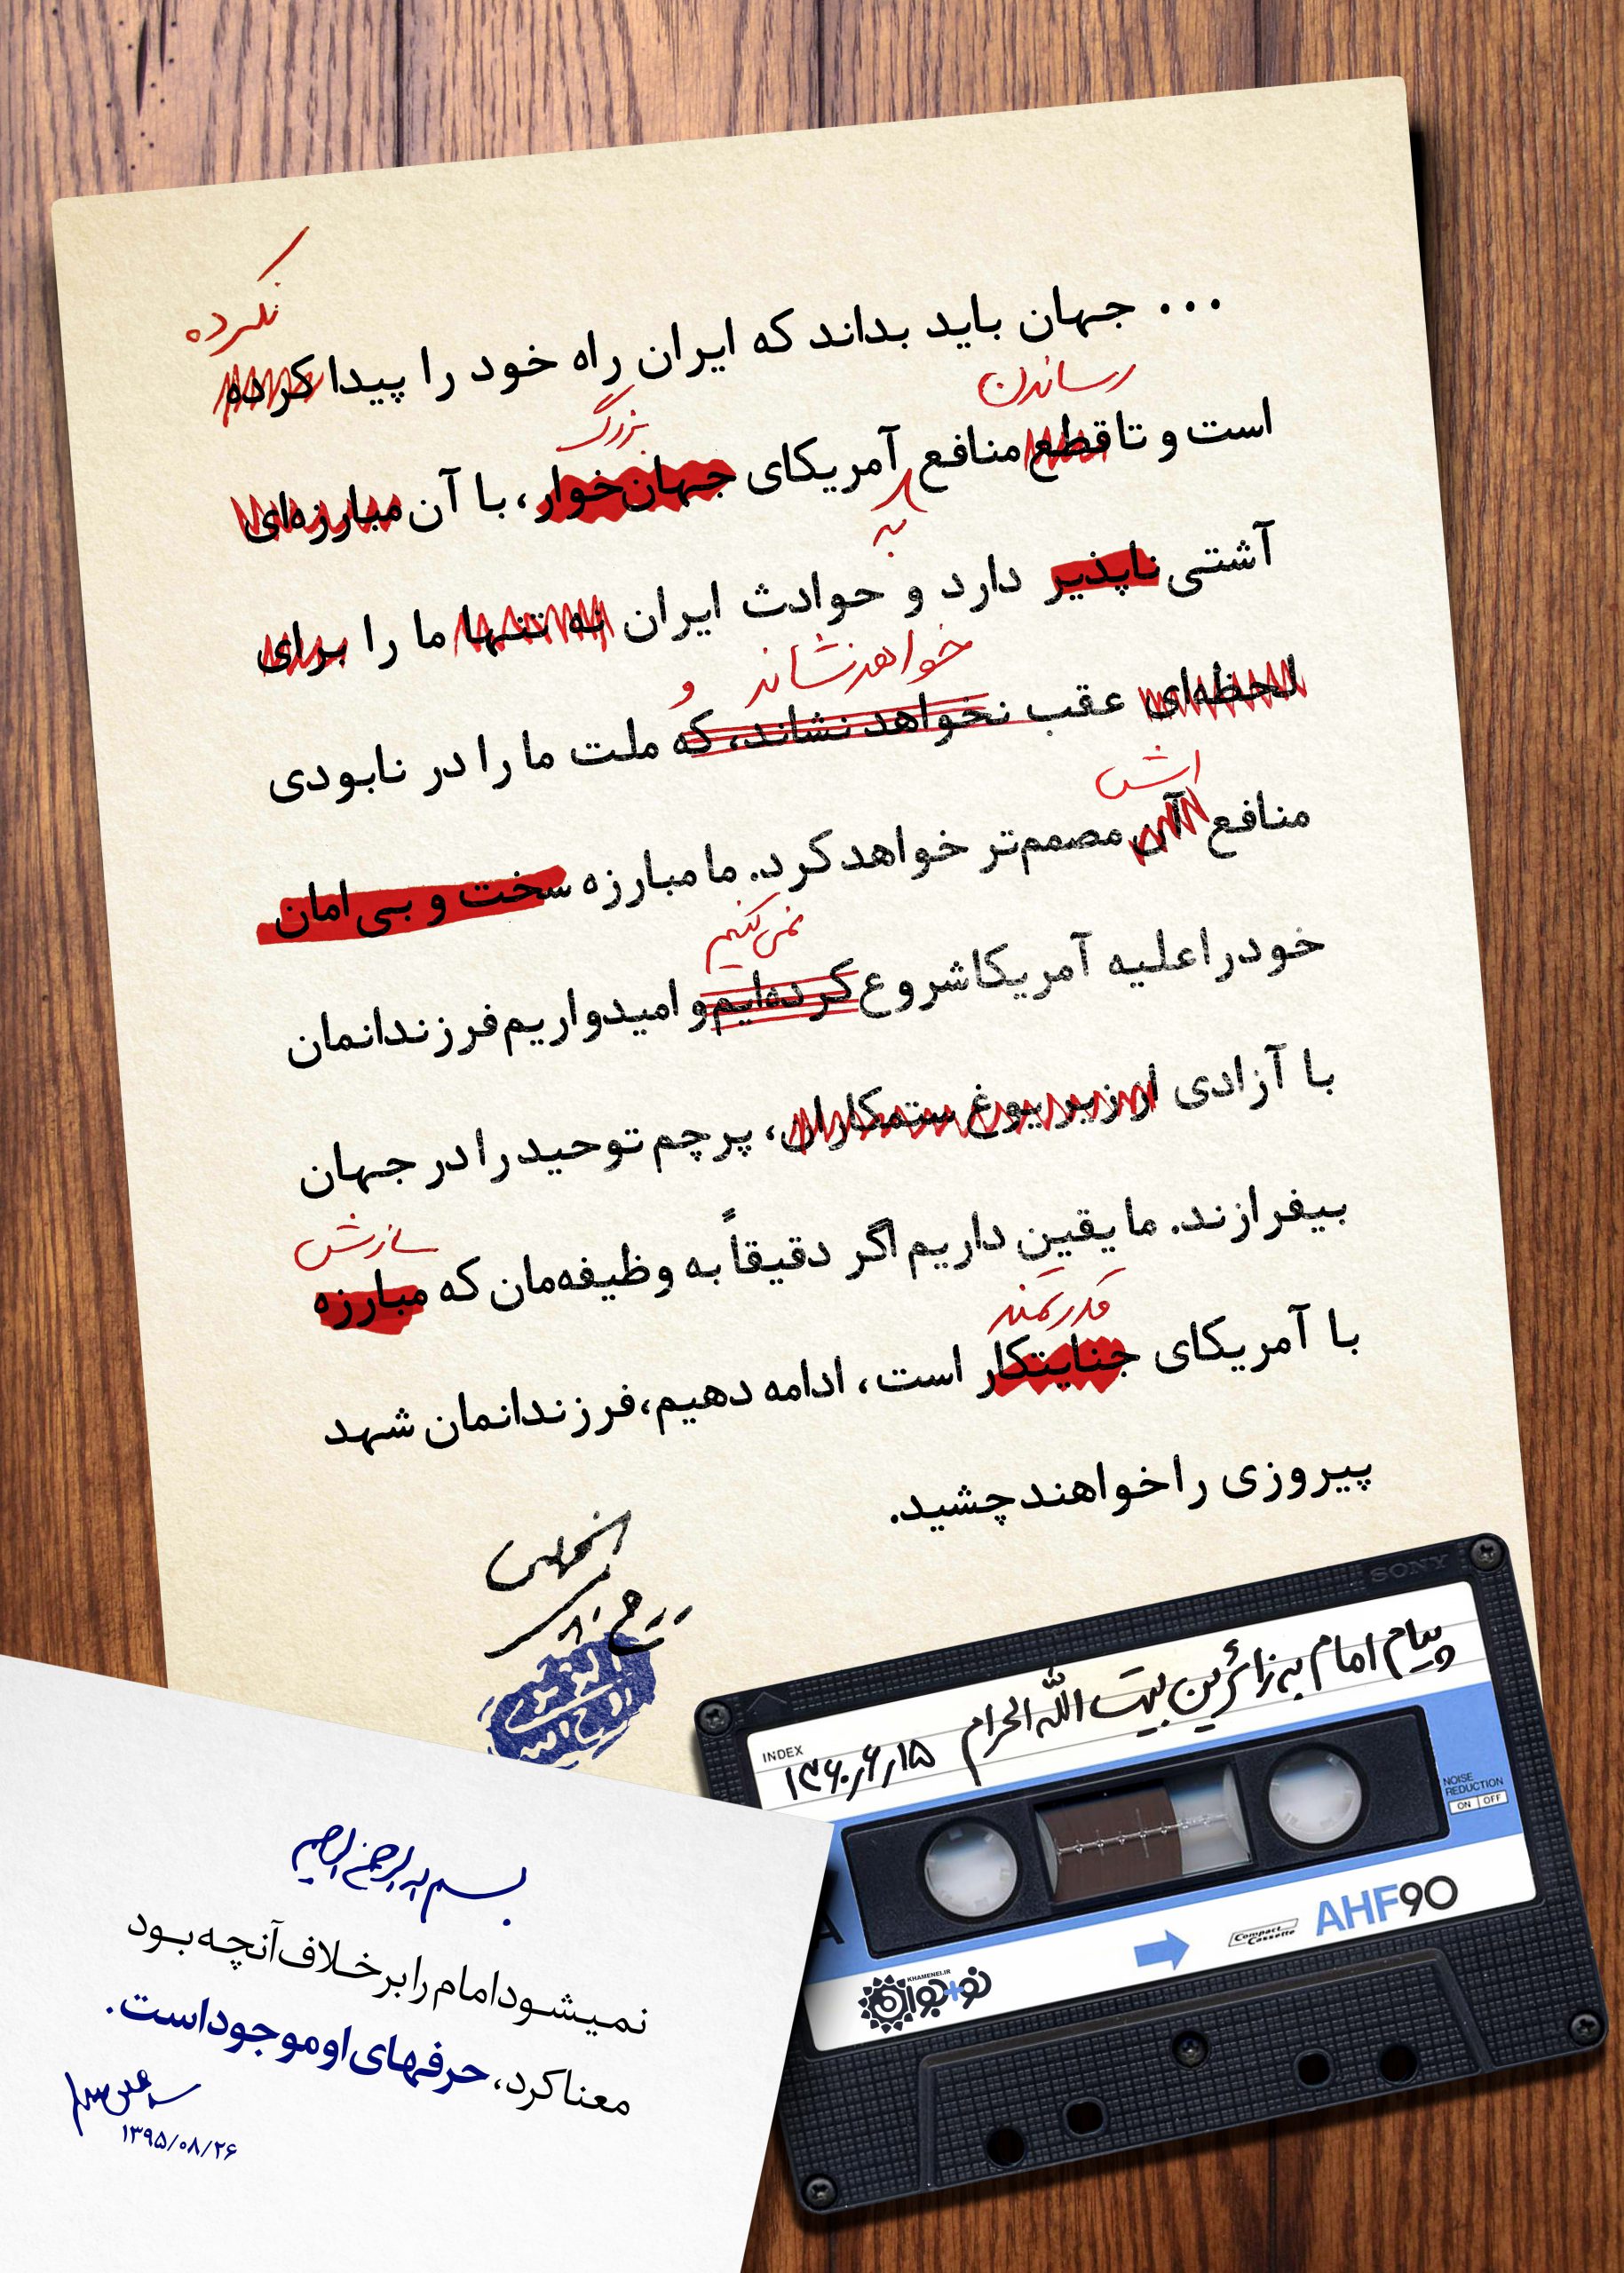 نکرده
... جهان باید بداند که ایران راه خود را پیدا کرده
رساندن
بزرگ
است و تا قطع منافع آمریکای جهان‌خوار، با آن مبارزه‌ای
به
آشتی ناپذیر دارد و حوادث ایران نه تنها ما را برای
خواهد نشاند و
لحظه‌ای عقب نخواهد نشاند، که ملت ما را در نابودی
اش
منافع آن مصمم‌تر خواهد کرد. ما مبارزه سخت و بی‌امان
نمی‌کنیم
خود را علیه آمریکا شروع کرده‌ایم و امیدواریم فرزندانمان
با آزادی از زیر یوغ ستمکاران، پرچم توحید را در جهان
بیفرازند. ما یقین داریم اگر دقیقاً به وظیفه‌مان که مبارزه
سازش
قدرتمند
با آمریکای جنایتکار است، ادامه دهیم، فرزندانمان شهد
پیروزی را خواهند چشید.
SONY
پیام امام به زائرین بیت الله الحرام
INDEX
۱۳۶۰٫۶٫۱۵
NOISE REDUCTION
ON OFF
A
Compact Cassette
AHF90
KHAMENEI.IR
نو+جوان
بسم الله الرحمن الرحیم
نمیشود امام را برخلاف آنچه بود
معنا کرد، حرفهای او موجود است.
۱۳۹۵/۰۸/۲۶